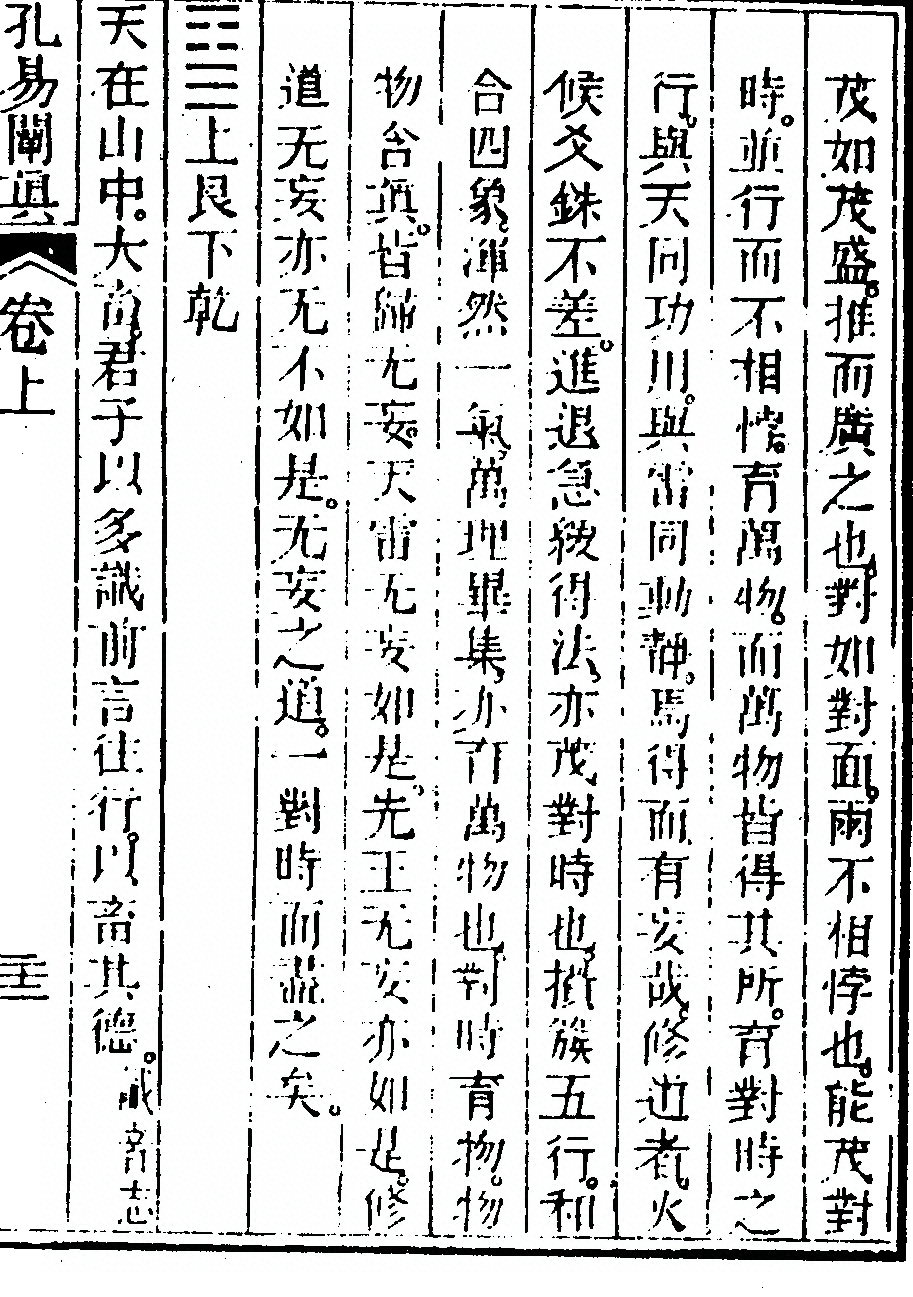 茂如茂盛。推而廣之也。對如對面。兩不相悖也。能茂對
時。並行而不相悖。育萬物。而萬物皆得其所。育對時之
行。與天同功用。與雷同動靜。焉得而有妄哉。修道者。火
候爻銖不差。進退急緩得法。亦茂對時也。攢簇五行。和
合四象。渾然一氣。萬理畢集。亦育萬物也。對時育物。物
物含真。皆歸无妄。天雷无妄如是。先王无妄亦如是。修
道无妄亦无不如是。无妄之道。一對時而盡之矣。
上艮下乾
天在山中。大畜。君子以多識前言往行。以畜其德。識音志
孔易闡真 卷上 二十三